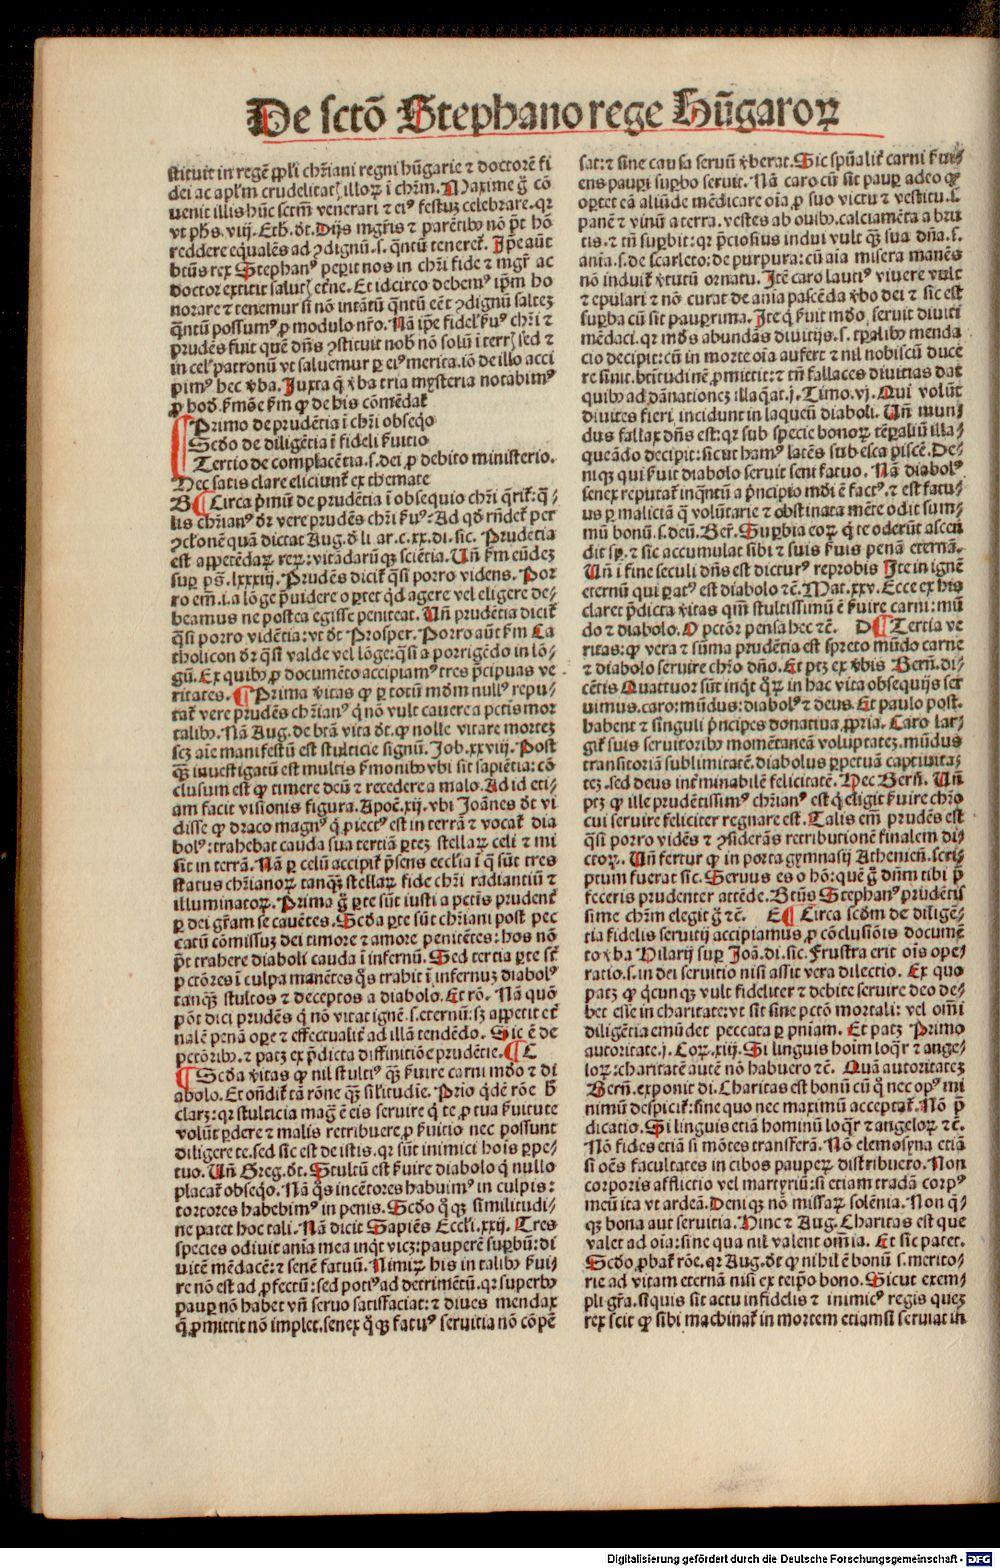 De sctō Stephano rege Hūgaroꝝ
stituit in regē ꝓpłi chr̄iani regni hūgarie ⁊ doctorē fi
dei ac apłm crudelitatꝭ illoꝝ ī chr̄m. Maxime g̃ cō
uenit illis hūc sctm̄ venerari ⁊ eiꝰ festuꝫ celebrare. qꝛ
vt ph̄s. viij. Eth. d̄t. Dijs mgr̄is ⁊ parētibꝰ nō pōt hō
reddere eq̄ualēs ad ꝯdignū. s. q̄ntū teneret᷑. Ip̄e aūt
btūs rex Stephanꝰ peꝑit nos in chr̄i fide ⁊ mgr̄ ac
doctor extitit salutꝭ etn̄e. Et idcirco debemꝰ ip̄m ho
norare ⁊ tenemur si nō intātū q̄ntū eēt ꝯdignū saltez
q̄ntū possumꝰ ꝓ modulo nr̄o. Nā ip̄e fidelꝭ ẜuꝰ chr̄i ⁊
prudēs fuit quē dn̄s ꝯstituit nob̄ nō solū ī terrꝭ sed ⁊
in celꝭ patronū vt saluemur ꝑ eiꝰ merita. iō de illo acci
pimꝰ hec v̄ba. Iuxta q̄ v̄ba tria mysteria notabimꝰ
ꝓ hoďẜmōe ẜm ꝙ de his cōmēdat᷑
Primo de prudētia ī chr̄i obseq̄o
Scďo de diligētia ī fideli ẜuitio
Tertio de complacētia. s. dei ꝓ debito ministerio.
Hec satis clare eliciunt᷑ ex themate
B Circa pᵐū de prudētia ī obsequio chr̄i q̄rit᷑: q̄-
lis chr̄ianꝰ dr̄ vere prudēs chr̄i ẜuꝰ. Ad qď rn̄det᷑ per
ꝯclonē quā dictat Aug. ď li. ar. c. xx. di. sic. Prudētia
est appetēdaꝝ reꝝ: vitādarūqꝫ sciētia. Un̄ ẜm eūdeꝫ
suꝑ ps̄. lxxxiij. Prudēs dicit᷑ q̄si porro videns. Por
ro em̄. i. a lōge p̄uidere oportet qď agere vel eligere de-
beamus ne postea egisse peniteat. Un̄ prudētia dicit᷑
q̄si porro vidētia: vt d̄t Prosper. Porro aūt ẜm Ca
tholicon dr̄ q̄si valde vel lōge: q̄si a porrigēdo in lō-
gū. Ex quibꝰ ꝓ documēto accipiamꝰ tres p̄cipuas ve
ritates. Prima v̄itas ꝙ ꝑ totū mūdm nullꝰ repu-
tat᷑ vere prudēs chr̄ianꝰ q̄ nō vult cauere a pctīs mor
talibꝰ. Nā Aug. de btā vita d̄t. ꝙ nolle vitare mortez
scꝫ aīe manifestū est stulticie signū. Iob. xxviij. Post
qꝫ inuestigatū est multis ẜmonibꝰ vbi sit sapiētia: cō
clusum est ꝙ timere deū ⁊ recedere a malo. Ad id eti-
am facit visionis figura. Apoc̄. xij. vbi Joānes d̄t vi
disse ꝙ draco magnꝰ q̄ ꝓiectꝰ est in terrā ⁊ vocat᷑ dia
bolꝰ: trahebat cauda sua tertiā ꝑteꝫ stellaꝝ celi ⁊ mi
sit in terrā. Nā ꝑ celū accipit᷑ p̄sens ecclīa ī q̄ sūt tres
status chr̄ianoꝝ tanqꝫ stellaꝝ fide chr̄i radiantiū ⁊
illuminatoꝝ. Prima g̃ ꝑte sūt iusti a pctīs prudent᷑
ꝑ dei gr̄am se cauētes. Scďa ꝑte sūt chr̄iani post pec
catū cōmissuꝫ dei timore ⁊ amore penitētes: hos nō
pōt trahere diaboli cauda ī infernū. Sed tertia ꝑte sūt
pctōres ī culpa manētes q̄s trahit ī infernuꝫ diabolꝰ
tanqꝫ stultos ⁊ deceptos a diabolo. Et rō. Nā quō
pōt dici prudēs q̄ nō vitat ignē. s. eternū: sꝫ appetit et᷑
nalē penā oꝑe ⁊ effectualit᷑ ad illā tendēdo. Sic ē de
pctōribꝰ. ⁊ patꝫ ex p̄dicta diffinitiōe prudētie. C
Scďa v̄itas ꝙ nil stultiꝰ qꝫ ẜuire carni mďo ⁊ di
abolo. Et on̄dit᷑ tā rōne qꝫ silitudīe. Prīo qďē rōe h̄
claꝝ: qꝛ stulticia magᵃ ē eis seruire q̄ te ꝓ tua ẜuitute
volūt ꝑdere ⁊ malis retribuere. ꝓ ẜuitio nec possunt
diligere te. sed sic est de istis. qꝛ sūt inimici hoīs ꝑpe-
tuo. Un̄ Greg. d̄t. Stultū est ẜuire diabolo q̄ nullo
placat᷑ obseq̄o. Nā q̄s incētores habuimꝰ in culpis:
tortores habebimꝰ in penis. Scďo q̄qꝫ similitudi-
ne patet hoc tali. Nā dicit Sapiēs Eccli. xxij. Tres
species odiuit anīa mea inq̄t vicꝫ: pauperē suꝑbū: di
uitē mēdacē: ⁊ senē fatuū. Nimiꝝ his in talibꝰ ẜui-
re nō est ad ꝓfectū: sed potiꝰ ad detrimētū. qꝛ superbꝰ
pauꝑ nō habet vn̄ seruo satisfaciat: ⁊ diues mendax
q̄ ꝓmittit nō implet. senex q̄qꝫ fatuꝰ seruitia nō cōpē
sat: ⁊ sine causa seruū v̄berat. Sic spūalit᷑ carni ẜui-
ens pauꝑi suꝑbo seruit. Nā caro cū sit pauꝑ adeo ꝙ
oꝑtet eā aliūde mēdicare oīa ꝓ suo victu ⁊ vestitu. s.
panē ⁊ vinū a terra. vestes ab ouibꝰ. calciamēta a bru
tis. ⁊ tn̄ suꝑbit: qꝛ p̄ciosiꝰ indui vult qꝫ sua dn̄a. s.
anīa. s. de scarleto: de purpura: cū aīa misera manēs
nō induit᷑ v̄tutū ornatu. Itē caro lautiꝰ viuere vult
⁊ epulari ⁊ nō curat de anīa pascēda v̄bo dei ⁊ sic est
suꝑba cū sit pauꝑrima. Itē q̄ ẜuit mďo. seruit diuiti
mēdaci. qꝛ mďs abundās diuitijs. s. tꝑalibꝰ menda
cio decipit: cū in morte oīa aufert ⁊ nil nobiscū duce
re sinit. btītudinē ꝓmittit: ⁊ tn̄ fallaces diuitias dat
quibꝰ ad dānationeꝫ illaq̄at. j. Timo. vj. Qui volūt
diuites fieri. incidunt in laqueū diaboli. Un̄ mun-
dus fallax dn̄s est: qꝛ sub specie bonoꝝ tēꝑaliū illa-
queādo decipit: sicut hamꝰ latēs sub esca piscē. De-
niqꝫ qui ẜuit diabolo seruit seni fatuo. Nā diabolꝰ
senex reputat᷑ inq̄ntū a p̄ncipio mďi ē factꝰ. ⁊ est fatu-
us ꝑ maliciā q̄ volūtarie ⁊ obstinata mēte odit sum-
mū bonū. s. deū. Ber̄. Suꝑbia eoꝝ q̄ te oderūt ascen
dit sp̄. ⁊ sic accumulat sibi ⁊ suis ẜuis penā eternā.
Un̄ ī fine seculi dn̄s est dicturꝰ reprobis Ite in ignē
eternū qui ꝑatꝰ est diabolo ⁊c̄. Mat. xxv. Ecce ex his
claret p̄dicta v̄itas qm̄ stultissimū ē ẜuire carni: mū
do ⁊ diabolo. O pctōr pensa hec ⁊c̄. D Tertia ve
ritas: ꝙ vera ⁊ sūma prudētia est spreto mūdo carne
⁊ diabolo seruire chr̄o dn̄o. Et ptꝫ ex v̄bis Bern̄. di-
cētis Quattuor sūt inq̄t q̄ꝝ in hac vita obsequijs ser
uimus. caro: mūdus: diabolꝰ ⁊ deus. Et paulo post.
habent ⁊ singuli p̄ncipes donatiua ꝓpria. Caro lar-
git᷑ suis seruitoribꝰ momētaneā voluptateꝫ. mūdus
transitoriā sublimitatē. diabolus ꝑpetuā captiuita-
teꝫ. sed deus int᷑minabilē felicitatē. Hec Bern̄. Un̄
ptꝫ ꝙ ille prudētissimꝰ chr̄ianꝰ est q̄ eligit ẜuire chr̄o
cui seruire feliciter regnare est. Talis em̄ prudēs est
q̄si porro vidēs ⁊ ꝯsiderās retributionē finalem di-
ctoꝝ. Un̄ fertur ꝙ in porta gymnasij Atheniēn. scri-
ptum fuerat sic. Seruus es o hō: quē g̃ dn̄m tibi p̄
feceris prudenter attēde. Btūs Stephanꝰ prudētis
sime chr̄m elegit g̃ ⁊c̄. E Circa scďm de diligē-
tia fidelis seruitij accipiamus ꝓ cōclusiōis documē
to v̄ba Hilarij suꝑ Joā. di. sic. Frustra erit oīs ope-
ratio. s. in dei seruitio nisi assit vera dilectio. Ex quo
patꝫ ꝙ q̄cunqꝫ vult fideliter ⁊ debite seruire deo de-
bet esse in charitate: vt sit sine pctō mortali: vel om̄i
diligētia emūdet peccata ꝑ pn̄iam. Et patꝫ Primo
autoritate. j. Coꝝ. xiij. Si linguis hoīm loq̄r ⁊ ange-
loꝝ: charitatē autē nō habuero ⁊c̄. Quā autoritateꝫ
Bern̄. exponit di. Charitas est bonū cū q̄ nec opꝰ mi
nimū despicit᷑: sine quo nec maximū acceptat᷑. Nō p̄
dicatio. Si linguis etiā hominū loq̄r ⁊ angeloꝝ ⁊c̄.
Nō fides etiā si mōtes transferā. Nō elemosyna etiā
si oēs facultates in cibos pauperꝝ distribuero. Non
corporis afflictio vel martyriū: si etiam tradā corpꝰ
meū ita vt ardeā. Deniqꝫ nō missaꝝ solēnia. Non q̄-
qꝫ bona aut seruitia. Hinc ⁊ Aug. Charitas est que
valet ad oīa: sine qua nil valent om̄ia. Et sic patet.
Scďo ꝓbat᷑ rōe. qꝛ Aug. d̄t ꝙ nihil ē bonū s. merito-
rie ad vitam eternā nisi ex ꝑno bono. Sicut exem-
pli gr̄a. siquis sit actu infidelis ⁊ inimicꝰ regis queꝫ
rex scit ꝙ sibi machinat᷑ in mortem etiamsi seruiat in
Digitalisierung gefördert durch die Deutsche Forschungsgemeinschaft - DFG